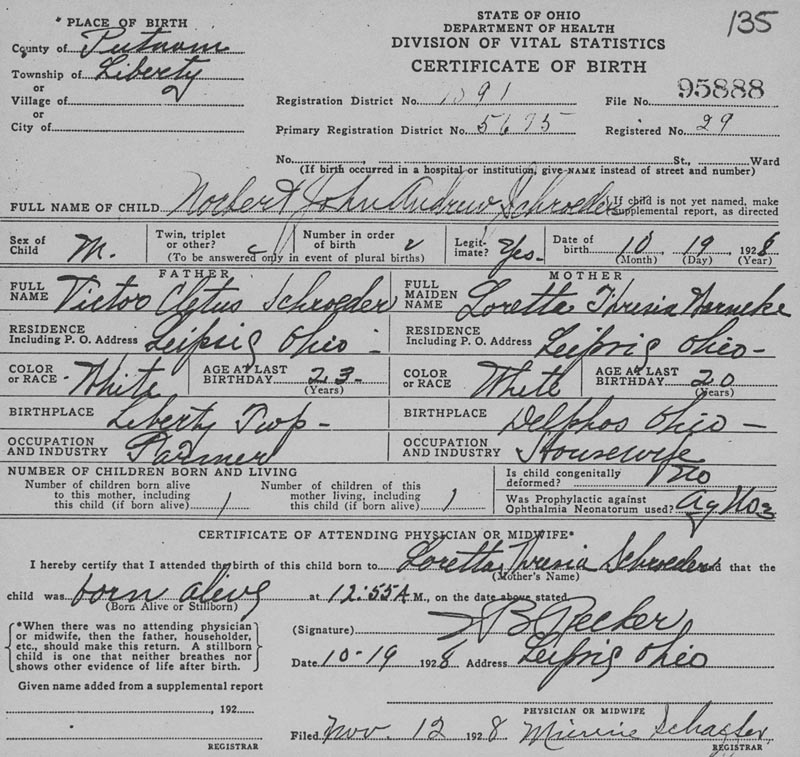 STATE OF OHIO
DEPARTMENT OF HEALTH
DIVISION OF VITAL STATISTICS
CERTIFICATE OF BIRTH
135
PLACE OF BIRTH
County of Putnam
Township of Liberty
or
Village of
or
City of
Registration District No. 1091
File No. 95888
Primary Registration District No. 5675
Registered No. 29
No. , St., Ward
(If birth occurred in a hospital or institution, give NAME instead of street and number)
FULL NAME OF CHILD Norbert John Andrew Schroeder
If child is not yet named, make supplemental report, as directed
Sex of Child M.
Twin, triplet or other?
Number in order of birth
(To be answered only in event of plural births)
Legitimate? Yes.
Date of birth 10 19 1928
(Month) (Day) (Year)
FATHER
FULL NAME Victor Cletus Schroeder
RESIDENCE Including P. O. Address Leipsig Ohio -
COLOR or RACE - White
AGE AT LAST BIRTHDAY 23 -
(Years)
BIRTHPLACE Liberty Twp -
OCCUPATION AND INDUSTRY Farmer
MOTHER
FULL MAIDEN NAME Loretta Thresia
RESIDENCE Including P. O. Address Leipsig Ohio -
COLOR or RACE White
AGE AT LAST BIRTHDAY 20
(Years)
BIRTHPLACE Delphos Ohio -
OCCUPATION AND INDUSTRY Housewife
NUMBER OF CHILDREN BORN AND LIVING
Number of children born alive to this mother, including this child (if born alive) 1
Number of children of this mother living, including this child (if born alive) 1
Is child congenitally deformed? No
Was Prophylactic against Ophthalmia Neonatorum used? Ag No3
CERTIFICATE OF ATTENDING PHYSICIAN OR MIDWIFE*
I hereby certify that I attended the birth of this child born to Loretta Thresia Schroeder and that the
(Mother's Name)
child was born alive at 12:55 A M., on the date above stated
(Born Alive or Stillborn)
*When there was no attending physician
or midwife, then the father, householder,
etc., should make this return. A stillborn
child is one that neither breathes nor
shows other evidence of life after birth.
(Signature)
Date 10-19 1928 Address Leipsig Ohio
Given name added from a supplemental report
, 192
REGISTRAR
PHYSICIAN OR MIDWIFE
Filed Nov. 12 1928 Minnie Schaefer
REGISTRAR